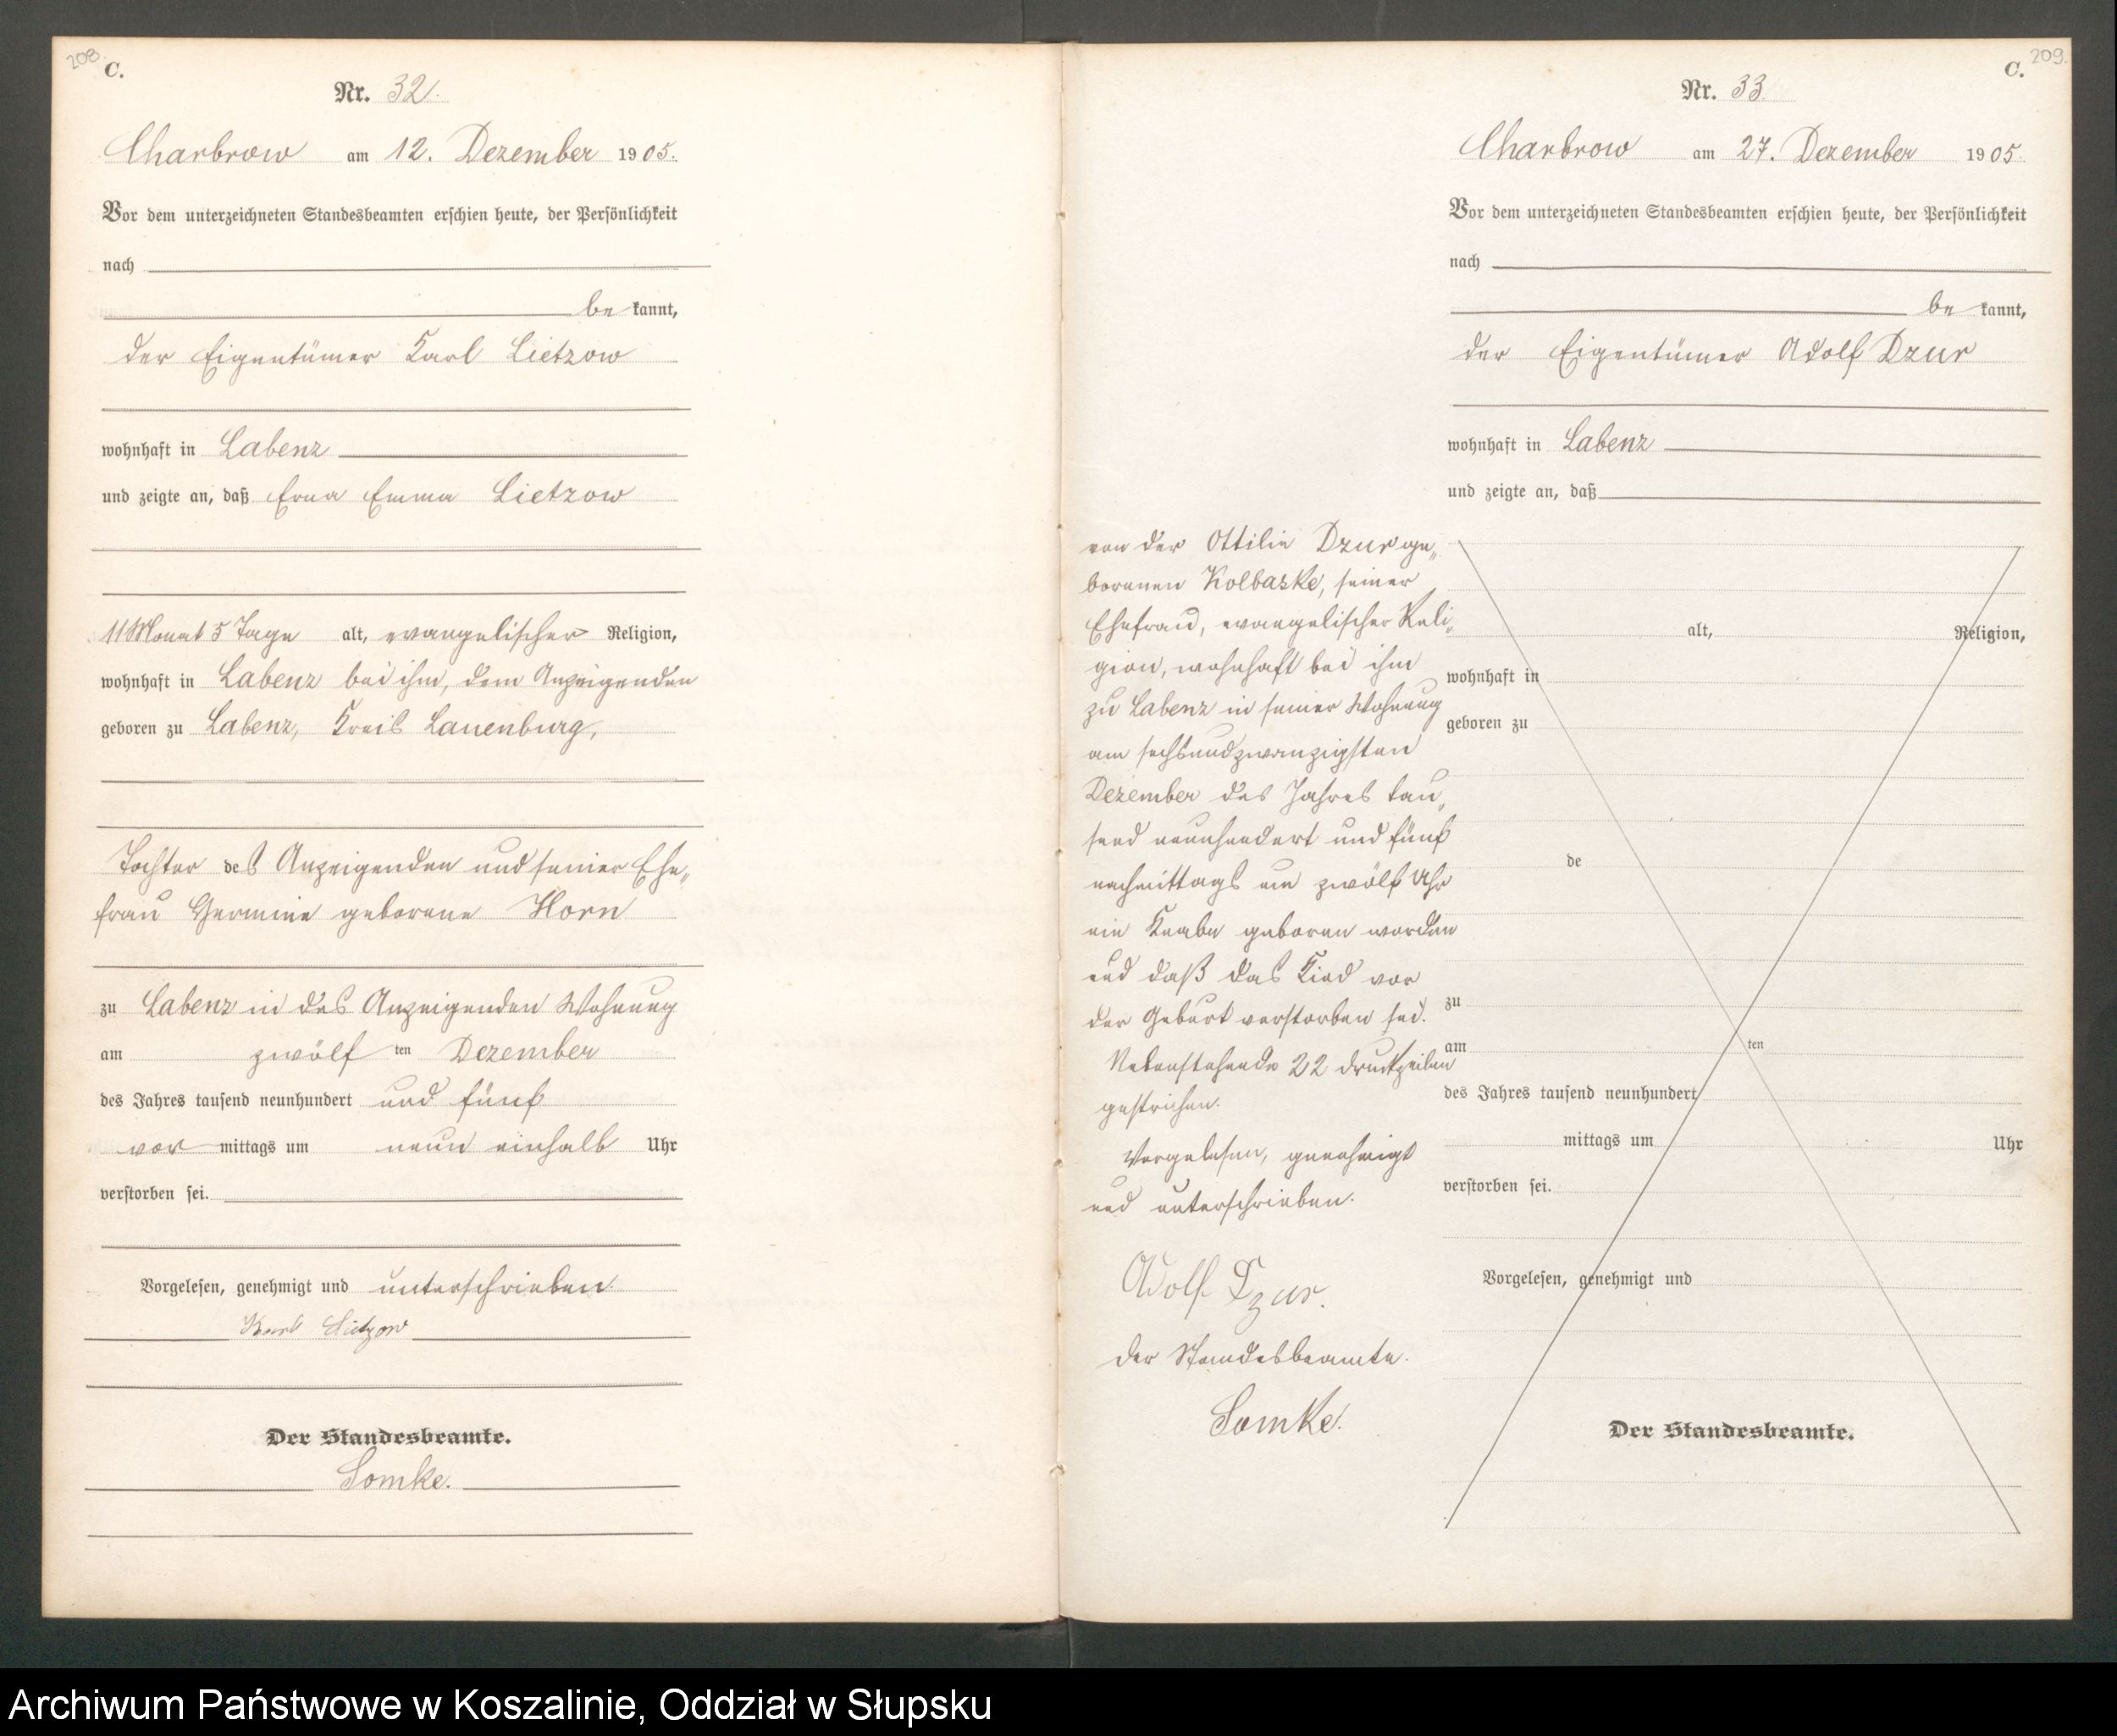 208.
C.
Nr. 32.
Charbrow am 12. Dezember 1905.
Vor dem unterzeichneten Standesbeamten erschien heute, der Persönlichkeit
nach
be kannt,
der Eigentümer Karl Lietzow
wohnhaft in Labenz
und zeigte an, daß Erna Emma Lietzow
11 Monat 5 Tage alt, evangelischer Religion,
wohnhaft in Labenz bei ihm, dem Anzeigenden
geboren zu Labenz, Kreis Lauenburg,
Tochter des Anzeigenden und seiner Ehe„
frau Hermine geborene Horn
zu Labenz in des Anzeigenden Wohnung
am zwölf ten Dezember
des Jahres tausend neunhundert und fünf
vor mittags um neun einhalb Uhr
verstorben sei.
Vorgelesen, genehmigt und unterschrieben.
Karl Lietzow
Der Standesbeamte.
Somke.
209.
C.
Nr. 33.
Charbrow am 27. Dezember 1905.
Vor dem unterzeichneten Standesbeamten erschien heute, der Persönlichkeit
nach
be kannt,
der Eigentümer Adolf Dzur
wohnhaft in Labenz
und zeigte an, daß
von der Ottilie Dzur ge„
borenen Kolbaske, seiner
Ehefrau, evangelischer Reli„
gion, wohnhaft bei ihm
zu Labenz in seiner Wohnung
am sechsundzwanzigsten
Dezember des Jahres tau„
send neunhundert und fünf
nachmittags um zwölf Uhr
ein Knabe geboren worden
und daß das Kind vor
der Geburt verstorben sei.
Nebenstehende 22 Druckzeilen
gestrichen.
Vorgelesen, genehmigt
und unterschrieben.
Adolf Dzur.
Der Standesbeamte.
Somke.
alt, Religion,
wohnhaft in
geboren zu
de
zu
am ten
des Jahres tausend neunhundert
mittags um Uhr
verstorben sei.
Vorgelesen, genehmigt und
Der Standesbeamte.
Archiwum Państwowe w Koszalinie, Oddział w Słupsku